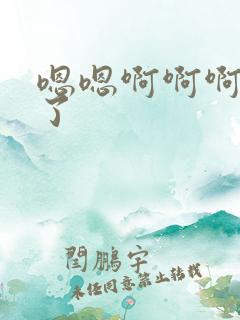 嗯嗯啊啊啊
了
閆鵬宇
未经同意禁止转载